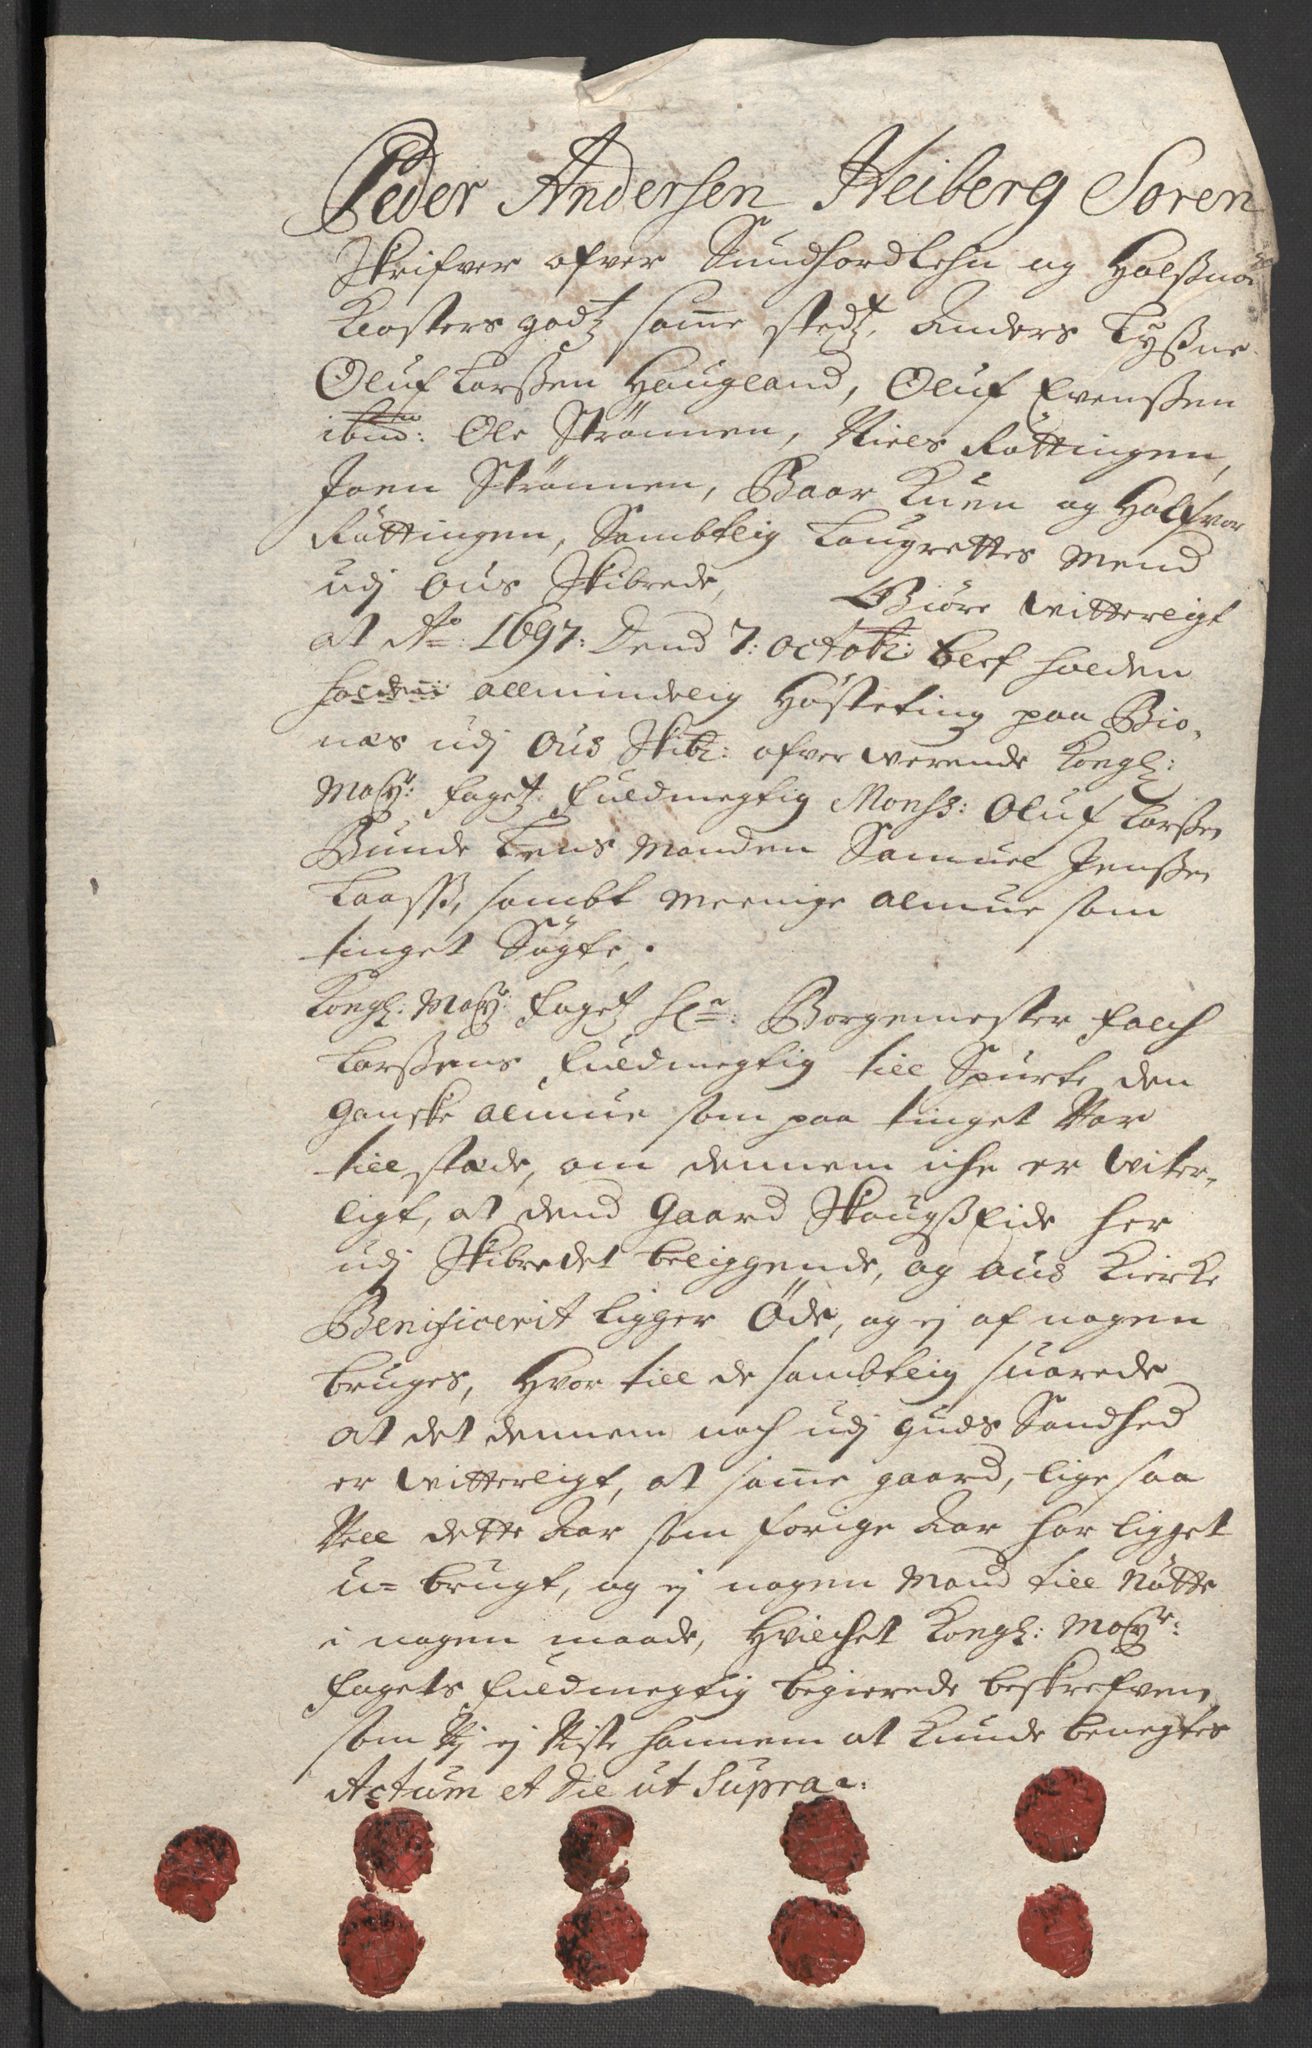 Peder Andersen Heiberg Soren
Skrifver ofver Sundhordlehn og Halßnøe
Closters godtz samme stedtz, Anders Tyßne
Oluf Larßen Haugland, Oluf Evenßen
ibid: Ole Strønnen, Niels Røttingen,
Joen Strønnen, Baar Kuen og Halfvor
Røttingen, Sambtlig Laugrettes Mend
udj Ous Skibrede, Giøre Witterligt
at Ao: 1697: Dend 7: octobr: blef holden
holden allmindelig Høsteting paa Biø-
næs udj Ous Skibr: ofververende Kongl:
Mayt: fogetz fuldmegtig Monsr: Oluf Larßen
Bunde Lens Manden Samuel Jenßen
Laaß, sambt Meenige Almue som
tinget Søgte.
Kongl: Mayt: fogetz Hr: Borgemester Falch
Larßens fuldmegtig till Spurte den
Ganske almue som paa tinget Var
till stæde, om dennem iche er Witer-
ligt, at dend Gaard Skougßeide her
udj Skibredet beliggende, og Ous Kierke
Benificerit ligger Øde, og ej af nogen
bruges, Hvor till de sambtlig suarede
at det dennem noch udj Guds Sandhed
er Witterligt, at samme gaard, lige saa
Vell dette Aar som forige Aar har ligget
u=brugt, og ej nogen Mand till Nøtte
i nogen maade, Hvilchet Kongl: Mayts:
fogets fuldmegtig begierede beskrefven,
som Vj ej Viste hannem at kunde benegtes
Actum et Die ut Supra: